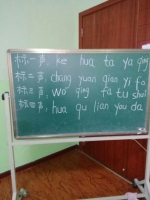 标一声, ke hua ta ya qing
标二声, chang yuan qiao yi fo
标三声, wo qing fa tu shui
标四声, hua qu lian you da